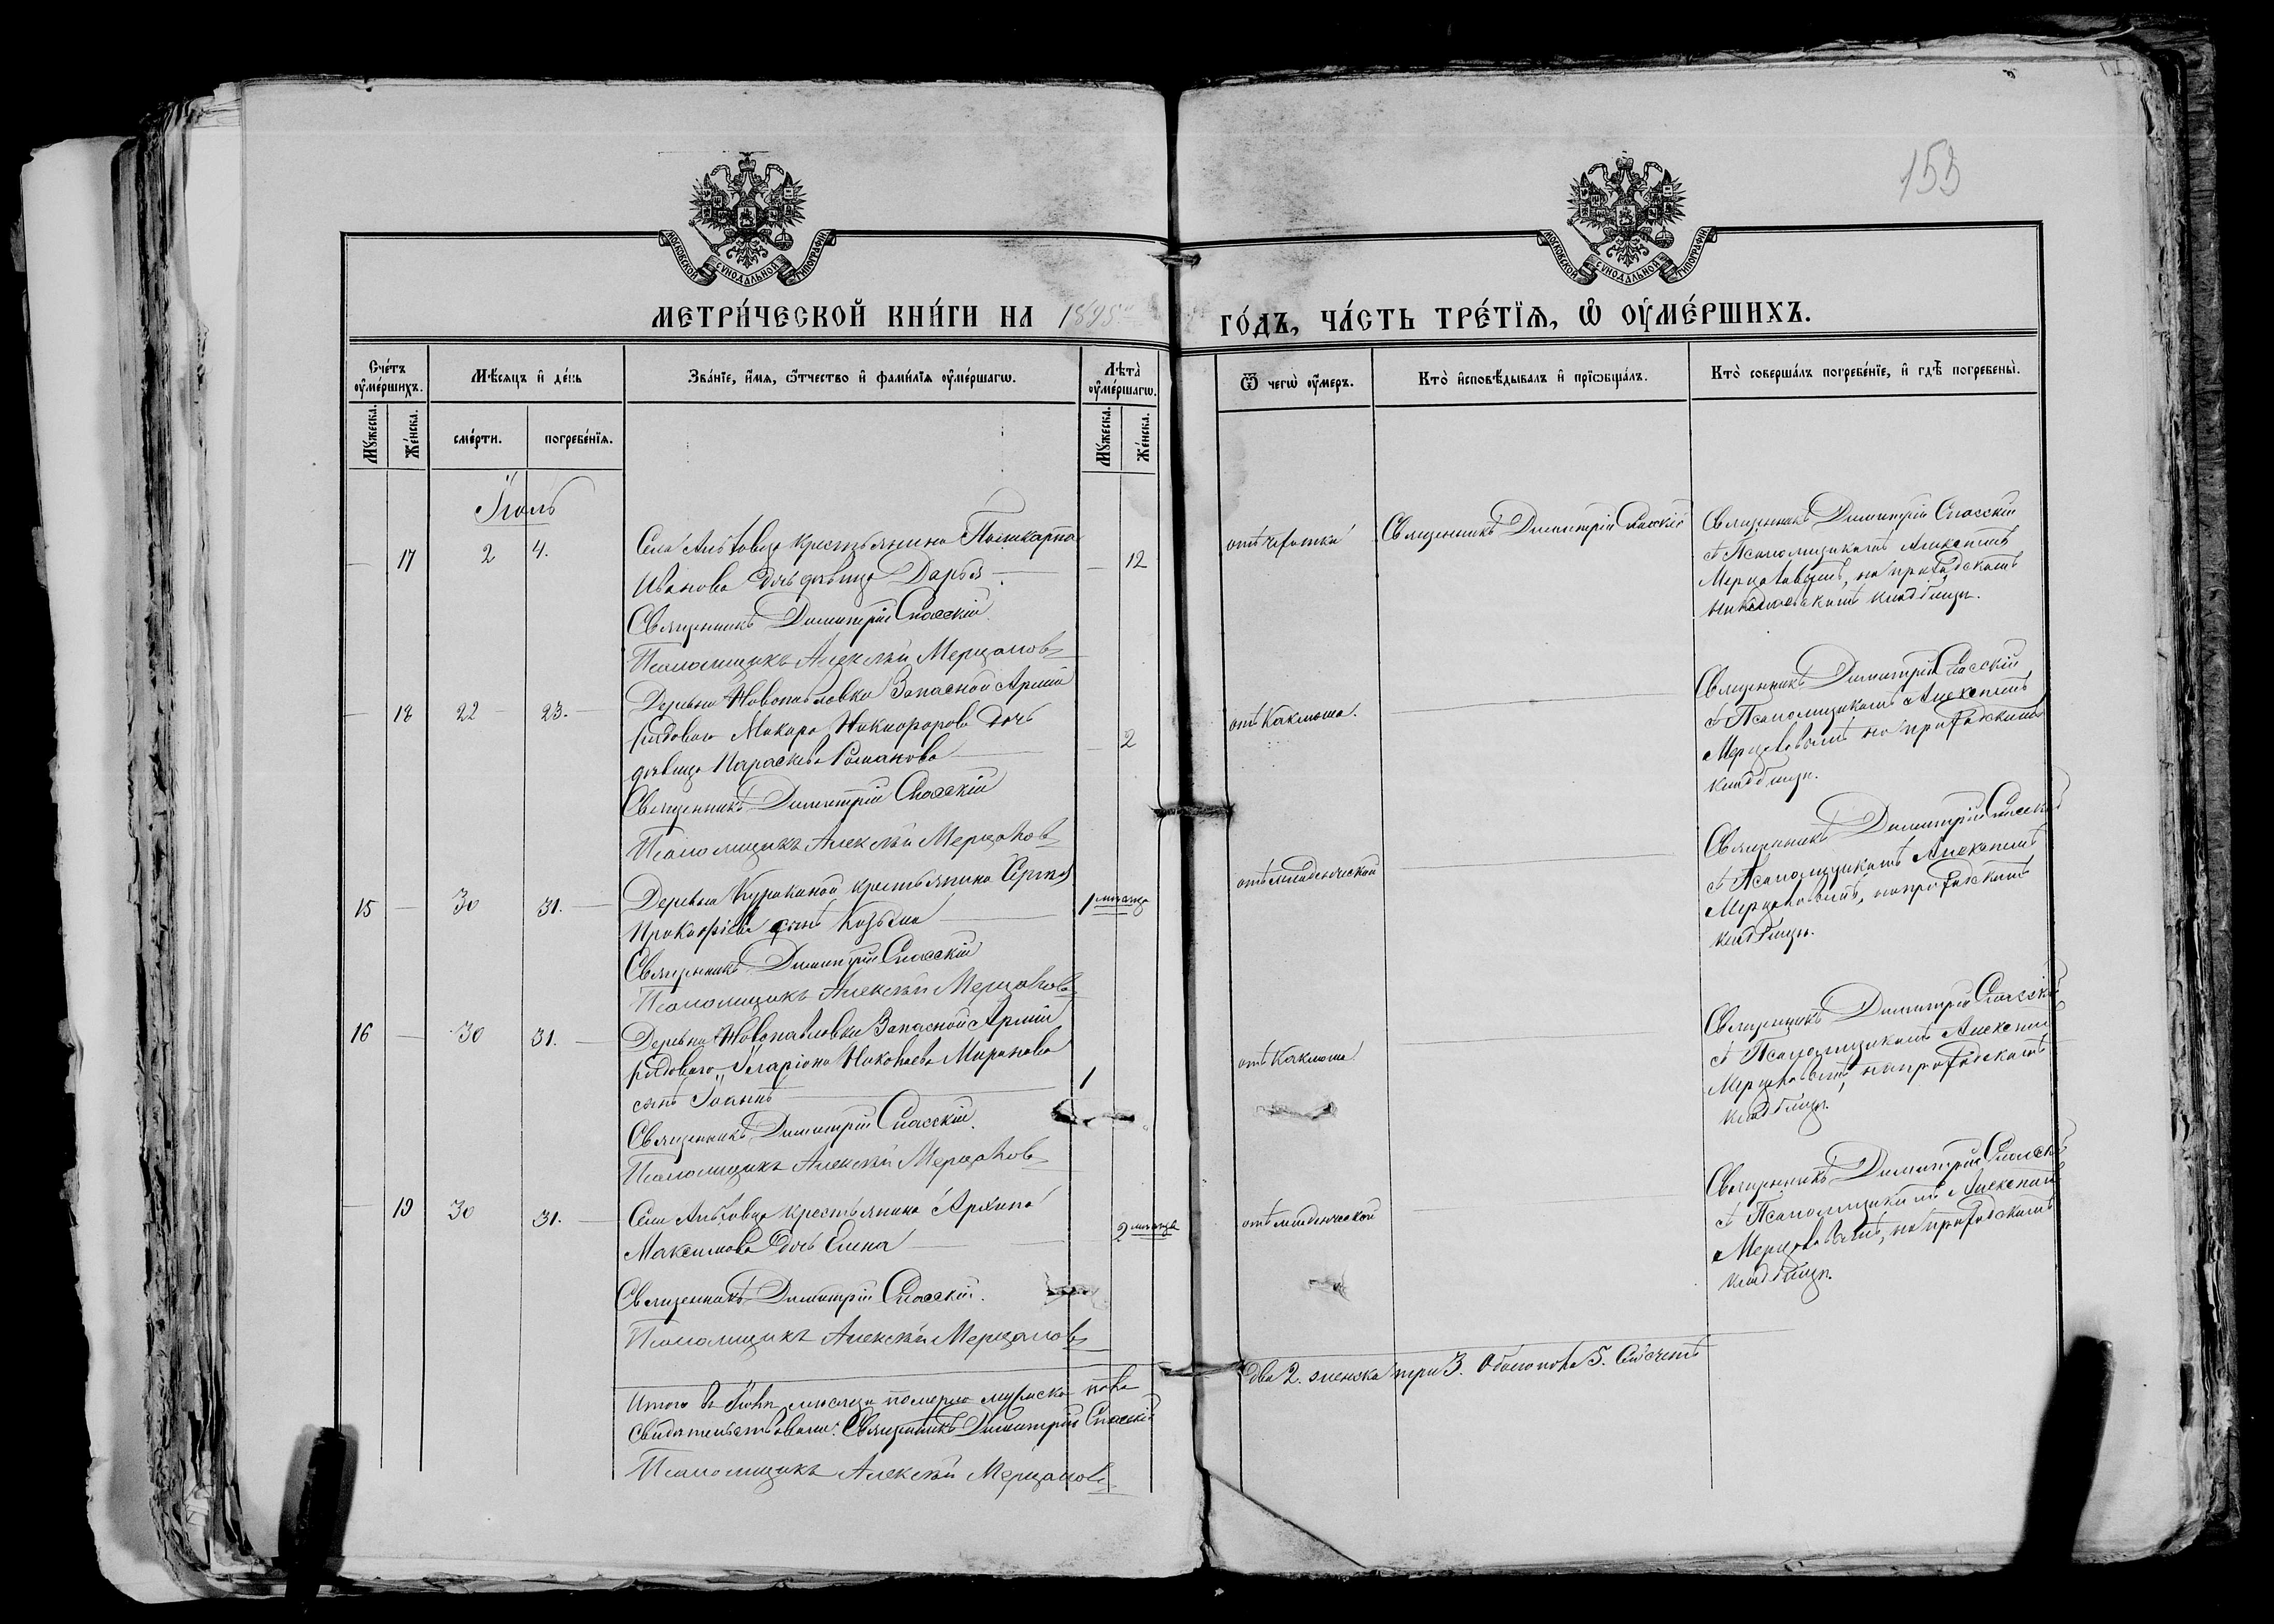 153
МОСКОВСКОЙ СѴНОДАЛЬНОЙ ТИПОГРАФІИ
МОСКОВСКОЙ СѴНОДАЛЬНОЙ ТИПОГРАФІИ
МЕТРИ́ЧЕСКОЙ КНИ́ГИ НА 1895 ГО́ДЪ, ЧА́СТЬ ТРЕ́ТІѦ, Ѡ҆ ОУ҆МЕ́РШИХЪ.
Сче́тъ оу҆ме́ршихъ.
Мꙋ́жеска.
Же́нска.
Мѣ́сяцъ и҆ де́нь
сме́рти.
погребе́нїѧ.
Зва́нїе, и҆́мѧ, ѻ҆́тчество и҆ фами́лїѧ оу҆ме́ршагѡ.
Лѣта̀ оу҆ме́ршагѡ.
Мꙋ́жеска.
Же́нска.
Ѿ чегѡ̀ оу҆́меръ.
Кто̀ и҆сповѣ́дывалъ и҆ прїѡбща́лъ.
Кто̀ соверша́лъ погребе́нїе, и҆ гдѣ̀ погребены̀.
Іюль
17 2 4.
Села крестьянина
Иванова дочь дѣвица Дарья
Священникъ Димитрій Спасскій
Псаломщикъ Алексѣй Мерцаловъ
12
Священникъ Димитрій Спасскій
Священникъ Димитрій Спасскій
съ Псаломщикомъ Алексѣемъ
Мерцаловымъ, на приходскомъ
кладбищѣ.
18 22 23.
Деревни Новопавловки Запасной Арміи
рядового Макара Никифорова дочь
дѣвица Параскева Романова
Священникъ Димитрій Спасскій
Псаломщикъ Алексѣй Мерцаловъ
2
отъ Коклюша.
Священникъ Димитрій Спасскій
съ Псаломщикомъ Алексѣемъ
Мерцаловымъ на приходскомъ
кладбищѣ.
15 30 31.
Деревни Куракиной крестьянина Сергѣя
Прокофьева сынъ Козьма
Священникъ Димитрій Спасскій
Псаломщикъ Алексѣй Мерцаловъ
1 мѣсяца
отъ младенческой
Священникъ Димитрій Спасскій
съ Псаломщикомъ Алексѣемъ
Мерцаловымъ, на приходскомъ
кладбищѣ.
16 30 31.
Деревни Новопавловки Запасной Арміи
рядового Иларіона Миронова
сынъ Іоаннъ
Священникъ Димитрій Спасскій.
Псаломщикъ Алексѣй Мерцаловъ
1
отъ Коклюша
Священникъ Димитрій Спасскій
съ Псаломщикомъ Алексѣемъ
Мерцаловымъ, на приходскомъ
кладбищѣ.
19 30 31.
Села крестьянина Архипа
Максимова дочь Елена
Священникъ Димитрій Спасскій.
Псаломщикъ Алексѣй Мерцаловъ
2 мѣсяца
отъ младенческой
Священникъ Димитрій Спасскій
съ Псаломщикомъ Алексѣемъ
Мерцаловымъ, на приходскомъ
кладбищѣ.
Итого въ Іюлѣ мѣсяцѣ померло мужеска пола два 2. женска три 3. обоего пола 5.
Свидѣтельствовали: Священникъ Димитрій Спасскій
Псаломщикъ Алексѣй Мерцаловъ